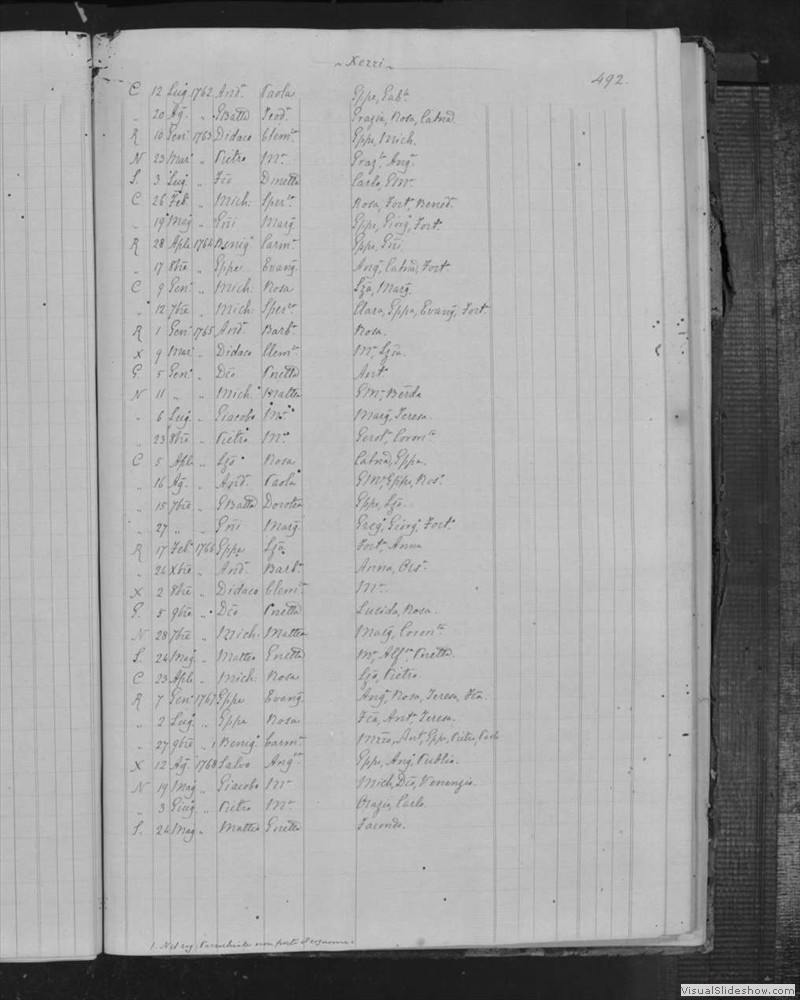 ~ Xerri ~
492.
C 12 Lug. 1762 And. Paola Gppe, Sab.
" 20 Ag. " GBatta Teod. Grazia, Rosa, Catna.
R 10 Gen. 1763 Didaco Clem. Gppe, Mich.
N 23 Mar. " Pietro Ma. Graz., Ang.
S. 3 Lug. " Dnetta Carlo, GMa.
C 26 Feb. " Mich. Sper. Rosa, Fort., Bened.
" 19 Mag. " Marg. Gppe, Giorg., Fort.
R 28 Aple 1764 Benig. Carm. Gppe,
" 17 8bre " Gppe Evang. Ang., Catna, Fort.
C 9 Gen. " Mich. Rosa Lza, Marg.
" 12 7bre " Mich. Sper. Clara, Gppa, Evang., Fort.
R 1 Gen. 1765 And. Barb. Rosa.
X 9 Mar. " Didaco Clem. Ma, Lza.
G. 5 Gen. " Pnetta Ant.
N 11 " " Mich. Mattea GMa, Berda
" 6 Lug. " Giacobo Ma. Marg., Teresa.
" 23 8bre " Pietro Ma. Gerol., Coron.
C 5 Aple " Lzo Rosa Catna, Gppa.
" 16 Ag. " And. Paola GMa, Gppe, Ros.
" 15 7bre " GBatta Dorotea Gppe, Lzo.
" 27 " " Marg. Greg., Giorg., Fort.
R 17 Feb. 1766 Gppe Lza Fort., Anna
" 24 Xbre " And. Barb. Anna,
X 2 8bre " Didaco Clem. Ma.
G. 5 9bre " Pnetta Lucida, Rosa.
N 28 7bre " Mich. Mattea Marg., Coron.
S. 24 Mag. " Matteo Gnetta Ma, Alf., Pnetta.
C 23 Aple " Mich. Rosa Lzo, Pietro.
R 7 Gen. 1767 Gppe Evang. Ang., Rosa, Teresa,
" 2 Lug. " Gppe Rosa Ant., Teresa.
" 27 9bre " 1 Benig. Carm. Ant., Gpp., Pietro,
X 12 Ag. 1768 Salvo Ang. Gppe, Ang., Publio.
N 19 Mag. " Giacobo Ma. Mich., Venanzio.
" 3 Giug. " Pietro Ma. Orazio, Carlo.
S. 24 Mag. " Matteo Gnetta Facondo.
1. Nel reg. Parrochiale non porta il cognome.
VisualSlideshow.com